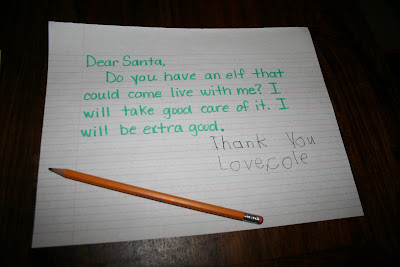 Dear Santa,
Do you have an elf that
could come live with me? I
will take good care of it. I
will be extra good.
Thank You
Love, Cole